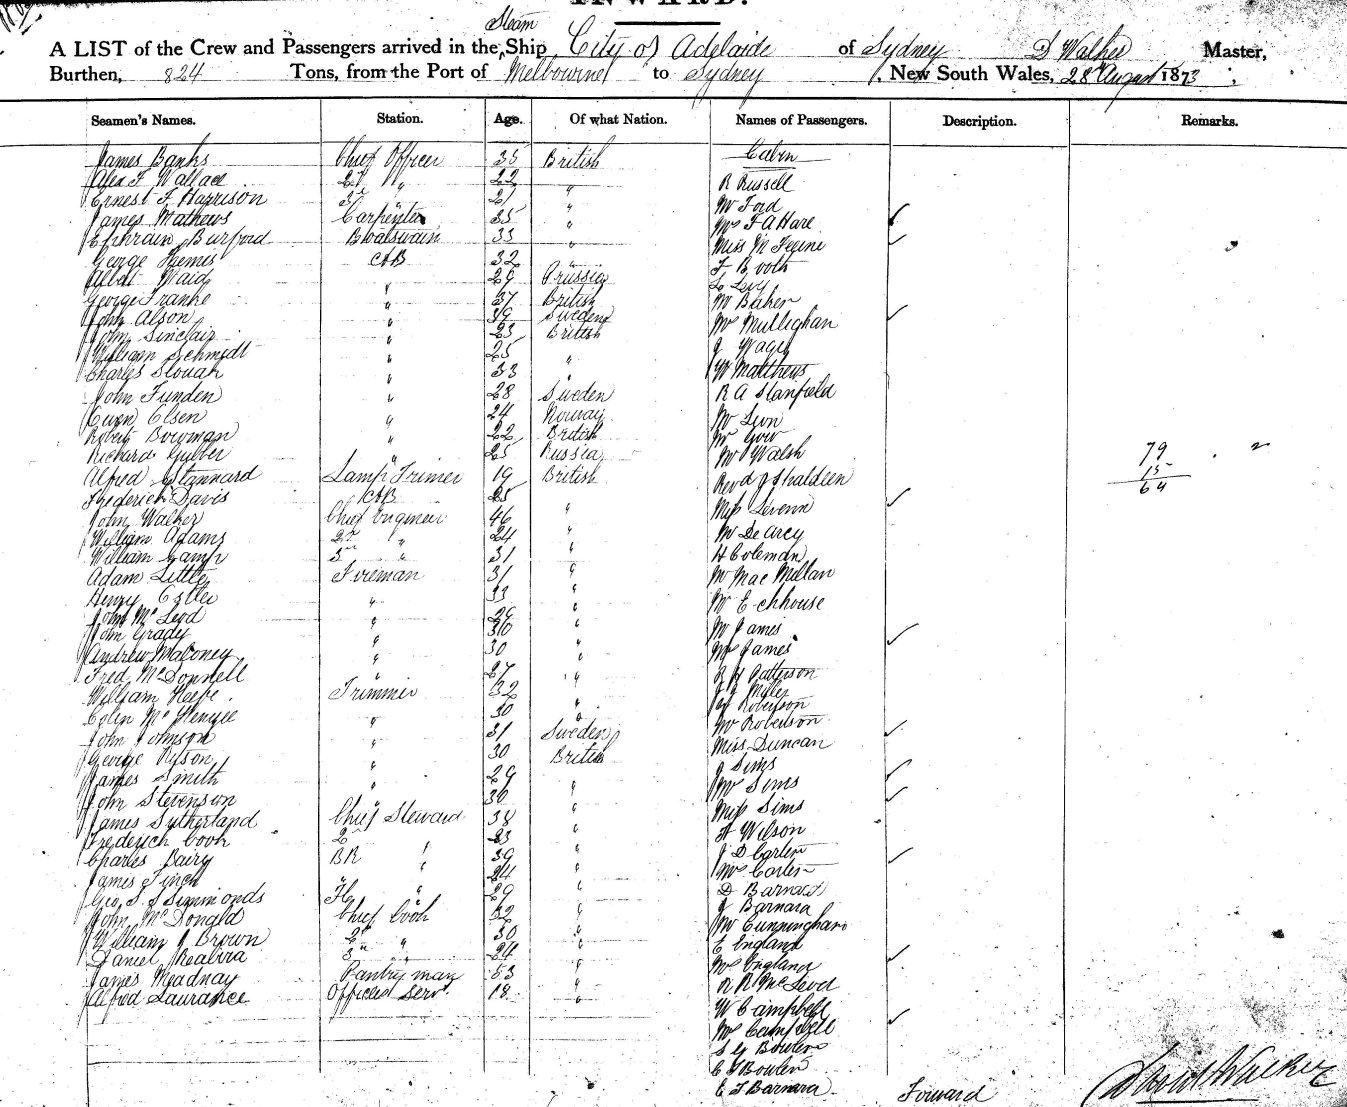 INWARD.
A LIST of the Crew and Passengers arrived in the Steam Ship City of Adelaide of Sydney D Walker Master,
Burthen, 824 Tons, from the Port of Melbourne to Sydney, New South Wales, 28th August 1873,
Seamen's Names. Station. Age. Of what Nation. Names of Passengers. Description. Remarks.
James Banks Chief Officer 35 British Cabin
Alex F Wallace 2nd " 22 " R Russell
Ernest F Harrison 3rd " 21 " Mr Ford
James Mathews Carpenter 35 " Mrs F A Hare
Ephraim Burford Boatswain 33 " Miss M
George AB 32 " F Booth
Albert Waid " 29 Prussia L Levy
George Franke " 37 British Mr Baker
John Alson " 39 Sweden Mrs Mullighan
John Sinclair " 23 British J
William Schmidt " 25 " W Matthews
Charles " 33 " R A Stanfield
John Funden " 28 Sweden Mr Leon
Owen Olsen " 24 Norway Mr Gow
Robert Bowman " 22 British Mr Walsh 79
Richard " 25 Russia Revd J 15
Alfred Stannard Lamp Trimer 19 British Miss 64
Frederick Davis AB 25 " Mr De Arcy
John Walker Chief Engineer 46 " H Coleman
William Adams 2nd " 24 " Mr Mac Millan
William Camp 3rd " 31 " Mr E chhouse
Adam Little Fireman 31 " Mr James
Henry " 33 " Mrs James
John McLeod " 29 " R H Patterson
John Grady " 30 " J J Miller
Andrew Maloney " 30 " Robertson
Fred McDonnell " 27 " Mr Robertson
William Keefe Trimmer 32 " Miss Duncan
Colin McKenzie " 30 " J Sims
John Johnson " 31 Sweden Mrs Sims
George Ryson " 30 British Miss Sims
James Smith " 29 " H Wilson
John Stevenson " 30 " J D Carter
James Sutherland Chief Steward 38 " Mrs Carter
Frederick Cook 2nd " 23 " D Barnard
Charles Bairy BR " 39 " J Barnara
James Finch " " 24 " Mr Cunningham
Geo. S J Simmonds " 29 " E England
John McDonald Chief Cook 32 " Mrs England
William J Brown 2nd " 30 " R R McLeod
Daniel 3rd " 24 " W Campbell
James Meadnay Pantry man 53 " Mrs Campbell
Alfred Laurance Officers Servt. 18 " S G Bowler
E J Bowler
E J Barnara Forward
David Walker